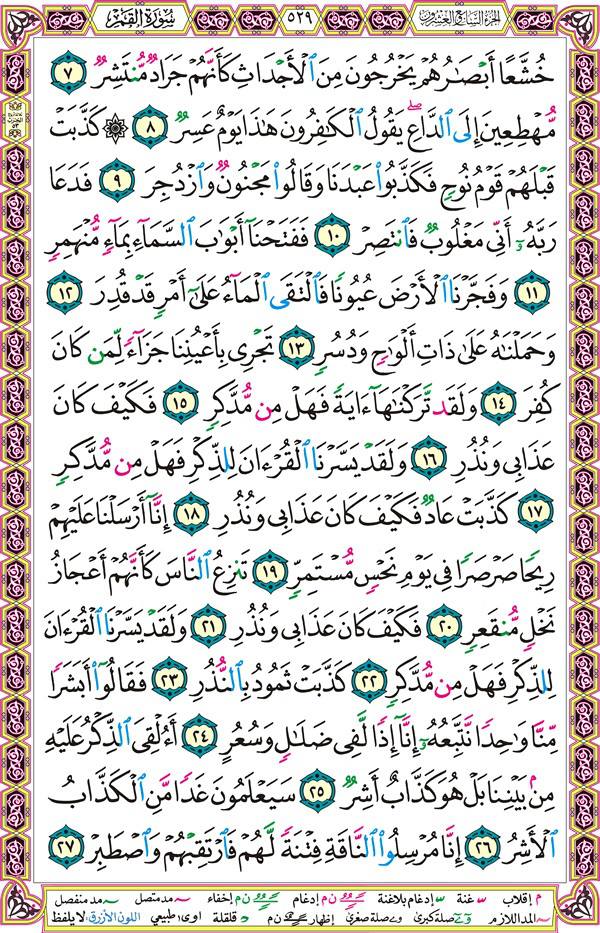 سورة القمر ٥٢٩ الجزء السابع والعشرون
خُشَّعًا أَبْصَٰرُهُمْ يَخْرُجُونَ مِنَ ٱلْأَجْدَاثِ كَأَنَّهُمْ جَرَادٌ مُّنتَشِرٌ ٧
مُّهْطِعِينَ إِلَى ٱلدَّاعِ ۖ يَقُولُ ٱلْكَٰفِرُونَ هَٰذَا يَوْمٌ عَسِرٌ ٨ ۞ كَذَّبَتْ
قَبْلَهُمْ قَوْمُ نُوحٍ فَكَذَّبُوا۟ عَبْدَنَا وَقَالُوا۟ مَجْنُونٌ وَٱزْدُجِرَ ٩ فَدَعَا
رَبَّهُۥٓ أَنِّى مَغْلُوبٌ فَٱنتَصِرْ ١٠ فَفَتَحْنَآ أَبْوَٰبَ ٱلسَّمَآءِ بِمَآءٍ مُّنْهَمِرٍ
١١ وَفَجَّرْنَا ٱلْأَرْضَ عُيُونًا فَٱلْتَقَى ٱلْمَآءُ عَلَىٰٓ أَمْرٍ قَدْ قُدِرَ ١٢
وَحَمَلْنَٰهُ عَلَىٰ ذَاتِ أَلْوَٰحٍ وَدُسُرٍ ١٣ تَجْرِى بِأَعْيُنِنَا جَزَآءً لِّمَن كَانَ
كُفِرَ ١٤ وَلَقَد تَّرَكْنَٰهَآ ءَايَةً فَهَلْ مِن مُّدَّكِرٍ ١٥ فَكَيْفَ كَانَ
عَذَابِى وَنُذُرِ ١٦ وَلَقَدْ يَسَّرْنَا ٱلْقُرْءَانَ لِلذِّكْرِ فَهَلْ مِن مُّدَّكِرٍ
١٧ كَذَّبَتْ عَادٌ فَكَيْفَ كَانَ عَذَابِى وَنُذُرِ ١٨ إِنَّآ أَرْسَلْنَا عَلَيْهِمْ
رِيحًا صَرْصَرًا فِى يَوْمِ نَحْسٍ مُّسْتَمِرٍّ ١٩ تَنزِعُ ٱلنَّاسَ كَأَنَّهُمْ أَعْجَازُ
نَخْلٍ مُّنقَعِرٍ ٢٠ فَكَيْفَ كَانَ عَذَابِى وَنُذُرِ ٢١ وَلَقَدْ يَسَّرْنَا ٱلْقُرْءَانَ
لِلذِّكْرِ فَهَلْ مِن مُّدَّكِرٍ ٢٢ كَذَّبَتْ ثَمُودُ بِٱلنُّذُرِ ٢٣ فَقَالُوٓا۟ أَبَشَرًا
مِّنَّا وَٰحِدًا نَّتَّبِعُهُۥٓ إِنَّآ إِذًا لَّفِى ضَلَٰلٍ وَسُعُرٍ ٢٤ أَءُلْقِىَ ٱلذِّكْرُ عَلَيْهِ
مِنۢ بَيْنِنَا بَلْ هُوَ كَذَّابٌ أَشِرٌ ٢٥ سَيَعْلَمُونَ غَدًا مَّنِ ٱلْكَذَّابُ
ٱلْأَشِرُ ٢٦ إِنَّا مُرْسِلُوا۟ ٱلنَّاقَةِ فِتْنَةً لَّهُمْ فَٱرْتَقِبْهُمْ وَٱصْطَبِرْ ٢٧
م إقلاب غنة إدغام بلاغنة ن م إدغام ن م إخفاء مد متصل مد منفصل
المد اللازم صلة كبرى صلة صغرى إظهار ن م قلقلة اوى طبيعي اللون الأزرق: لا يلفظ